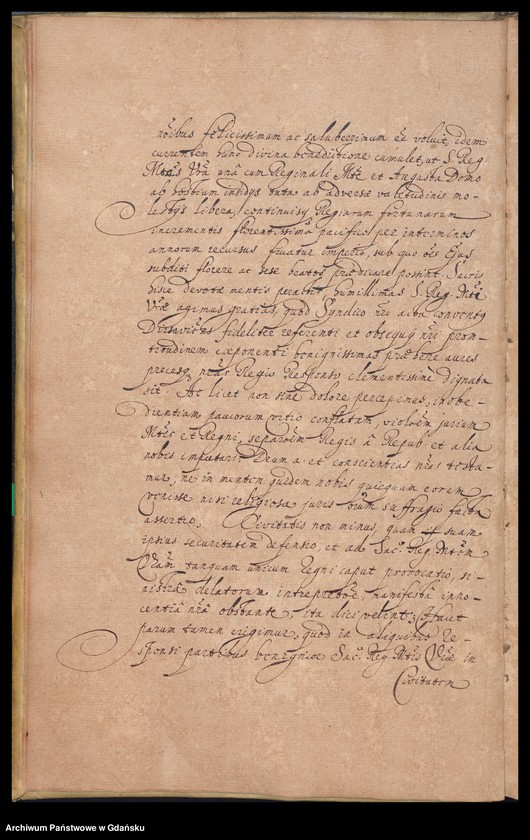 nõibus felicissimum ac saluberrimum eẽ voluit, idem
currentem hunc divina benedictione cumulet, ut S. Reg.
Mtas Vrã unâ cum Reginali Mte et Augusta Domo
ab hostium insidys tuta ab adversæ valetudinis mo-
lestys libera, continuisq Regiarum fortunarum
incrementis florentissimô pacificoq per interminos
annorum recursus fruatur imperio, sub quo oẽs Ejus
subditi florere ac sese beatos prædicare possint. Sacris
hisce devotæ mentis peractis humillimas S. Reg. Mti
Vræ agimus gratias, quod Syndico nrõ
fideliter referenti et obsequÿ nri prom-
titudinem exponenti benignissimas præbere aures
precesq nras Regio Responso clementissime dignata
sit. Ac licet non sine dolore percepimus, inobe-
dientiam paucorum vitio conflatam, violõem jurium
Mtis et Regni, separõem Regis â Repub. et alia
nobis imputari: Deum a. et conscientias nras testa-
mur, ne in mentem quidem nobis quicquam eorum
venisse nisi religiosa juris suffragio facta
assertio, Civitatis non minus, quam suam
ipsius securitatem defensio, et ad Sac. Reg. Mtem
Vram tanquam unicum Regni caput provocatio, si-
nistrâ delatorum interpretõe, manifesta inno-
centiâ nrâ obstante, ita dici velint; Haut
parum tamen erigimur, quod in aliquibus re-
sponsi partibus benignior Sac. Reg. Mtis Vræ in
Civitatem
Archiwum Państwowe w Gdańsku